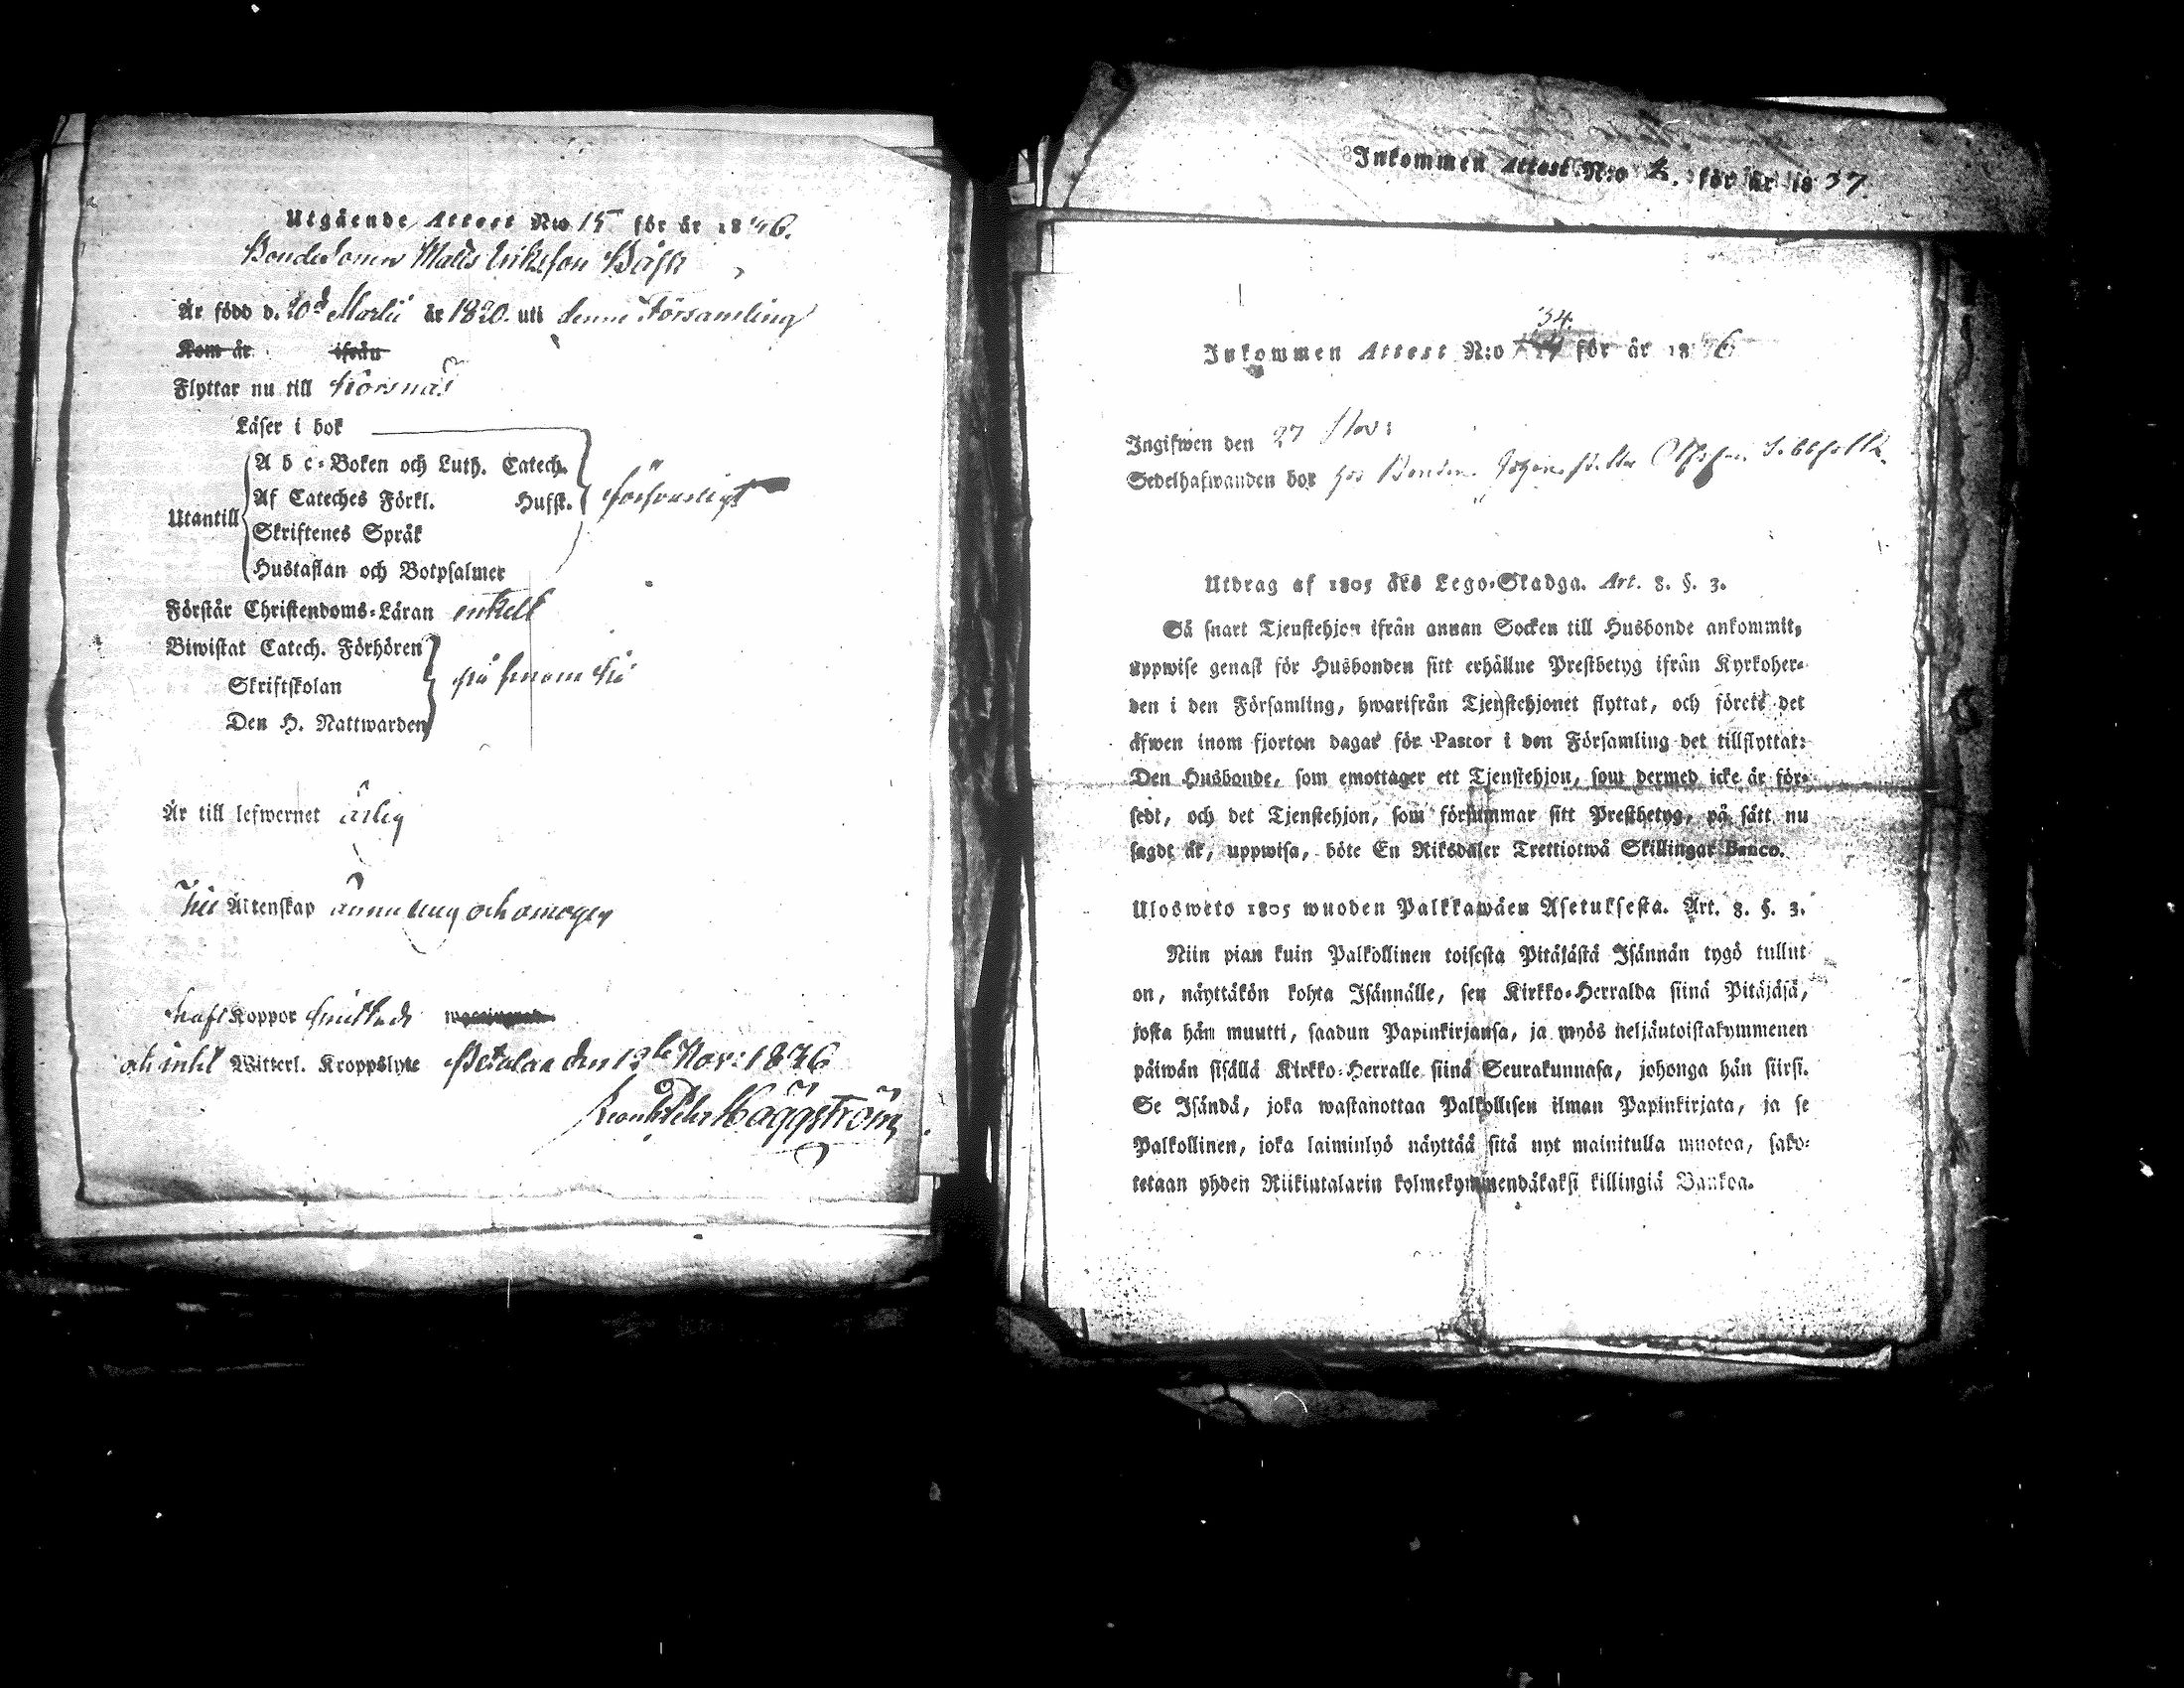 Utgående Attest N:o 15 för år 1836.
Bondesonen Matts Eriksson Båsk
Är född d. 20d Martii år 1820. uti denne Församling
Kom år ifrån
Flyttar nu till Korsnäs
Läser i bok
A b c-Boken och Luth. Catech.
Af Cateches Förkl. Husst. försvarligt
Utantill
Skriftenes Språk
Hustaflan och Botpsalmer
Förstår Christendoms-Läran enkelt
Biwistat Catech. Förhören
Skriftskolan
Den H. Nattwarden
Är till lefwernet ärlig
Till Äktenskap ännu ung och omogen
haft Koppor
och intet Witterl. Kroppslyte Petalax den 12te Nov: 1836
Häggström
Inkommen Attest N:o 2. för år 1837.
34.
Inkommen Attest N:o för år 1836
Ingifwen den 27 Nov:
Sedelhafwanden bor hos Bonden
Utdrag af 1805 års Lego-Stadga. Art. 8. §. 3.
Så snart Tjenstehjon ifrån annan Socken till Husbonde ankommit,
uppwise genast för Husbonden sitt erhållne Prestbetyg ifrån Kyrkoher-
den i den Församling, hwarifrån Tjenstehjonet flyttat, och förete det
äfwen inom fjorton dagar för Pastor i den Församling det tillflyttat:
Den Husbonde, som emottager ett Tjenstehjon, som dermed icke är för-
sedt, och det Tjenstehjon, som försummar sitt Prestbetyg, på sätt nu
sagdt är, uppwisa, böte En Riksdaler Trettiotwå Skillingar Banco.
Ulosweto 1805 wuoden Palkkawäen Asetuksesta. Art. 8. §. 3.
Niin pian kuin Palkollinen toisesta Pitäjästä Isännän tygö tullut
on, näyttäkön kohta Isännälle, sen Kirkko-Herralda siinä Pitäjäsä,
josta hän muutti, saadun Papinkirjansa, ja myös neljäntoistakymmenen
päiwän sisällä Kirkko-Herralle siinä Seurakunnasa, johonga hän siirsi.
Se Isändä, joka wastanottaa Palkollisen ilman Papinkirjata, ja se
Palkollinen, joka laiminlyö näyttää sitä nyt mainitulla muotoa, sako-
tetaan yhden Riikintalarin kolmekymmendäkaksi killingiä Bankoa.